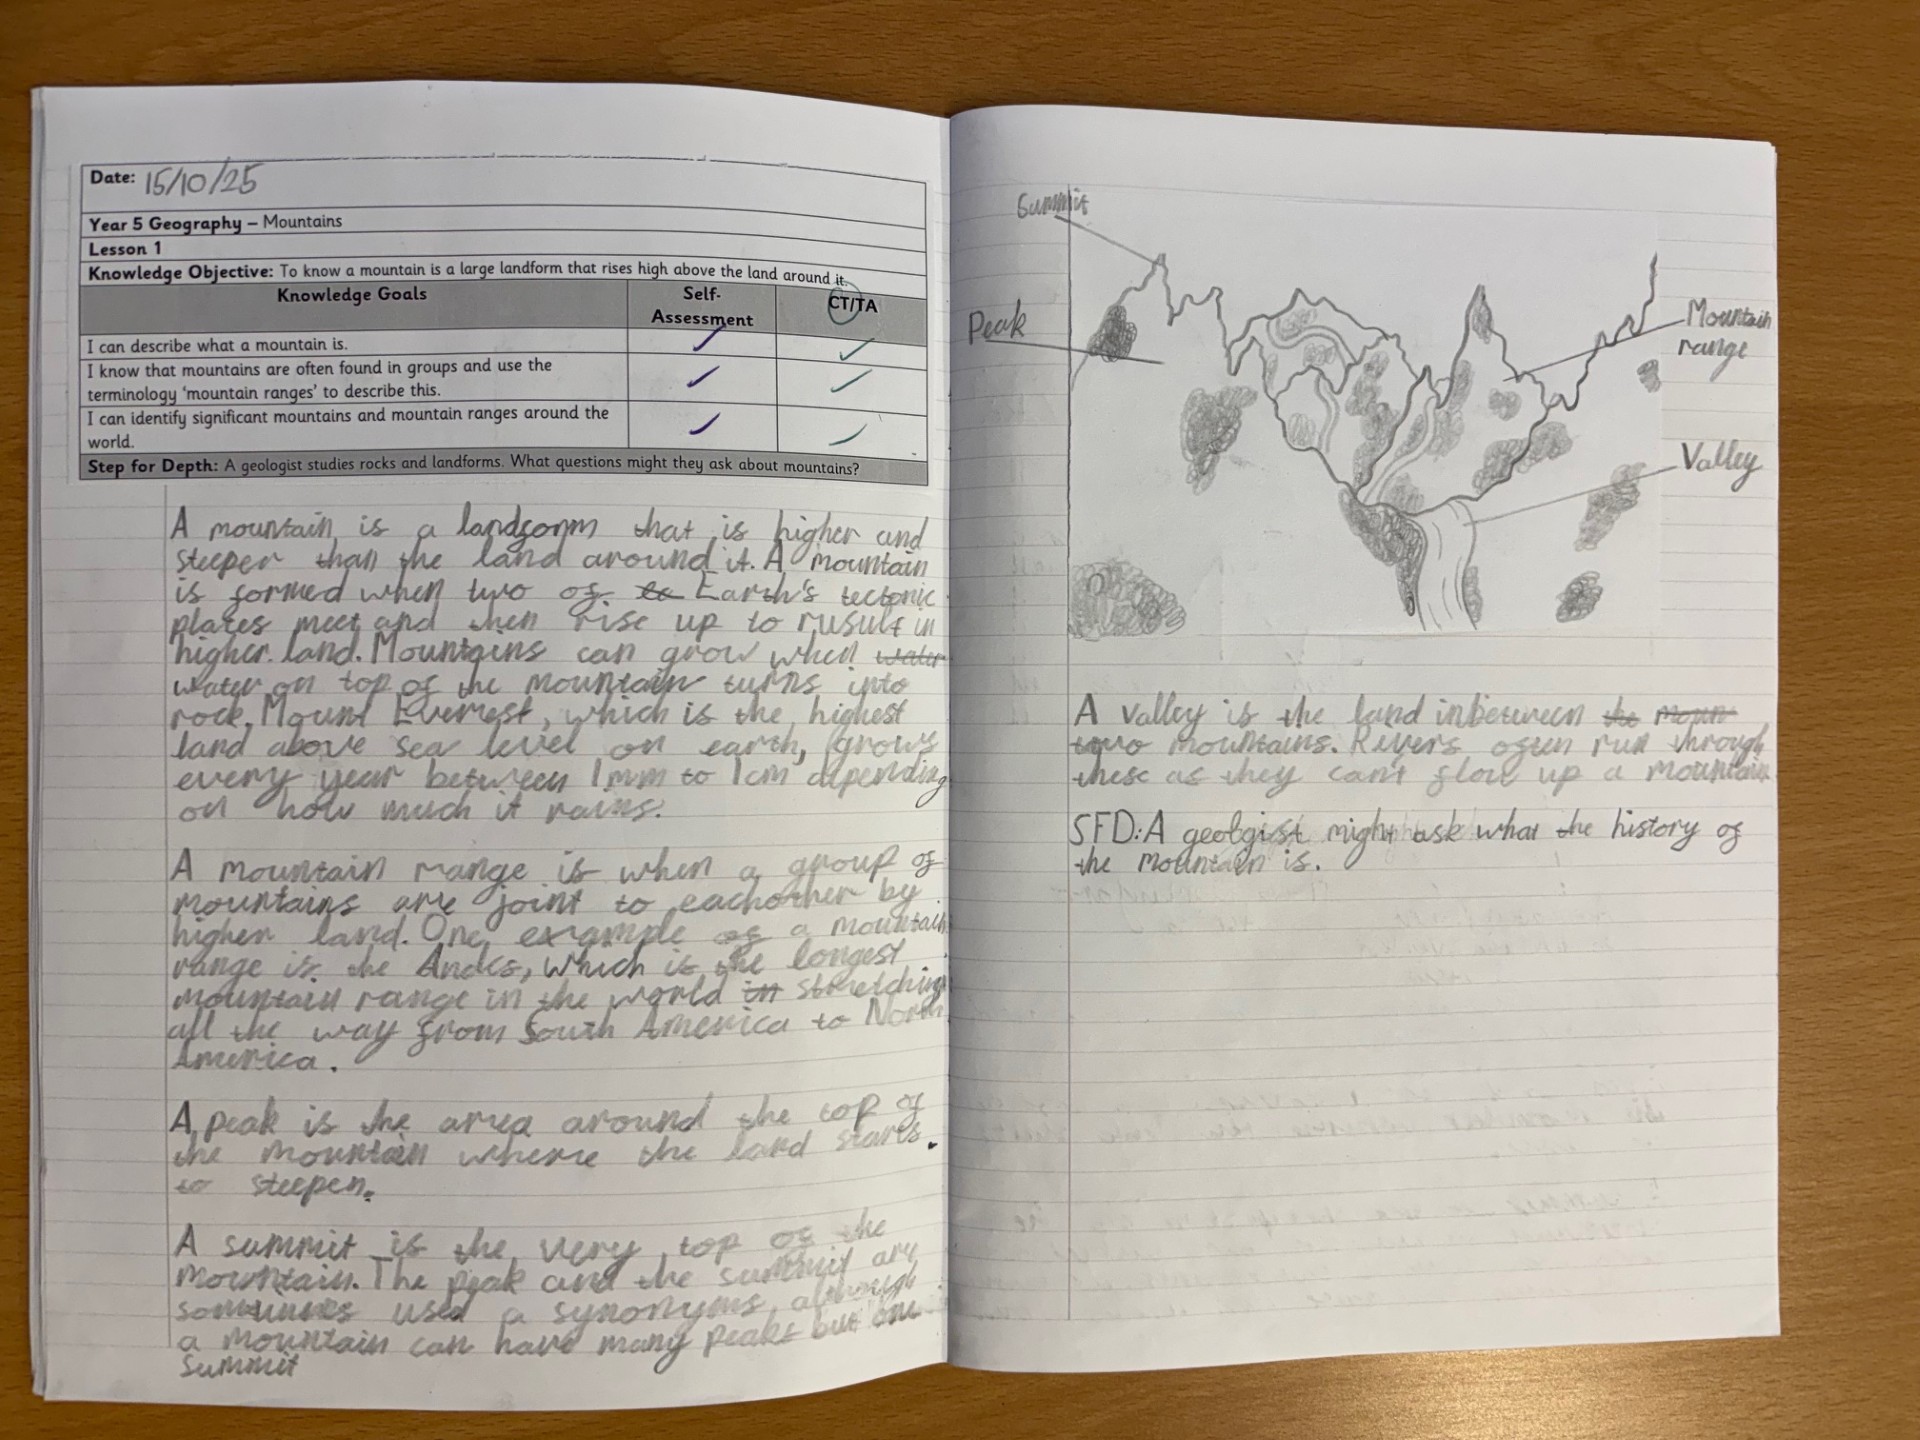 Date: 15/10/25
Year 5 Geography – Mountains
Lesson 1
Knowledge Objective: To know a mountain is a large landform that rises high above the land around it.
Knowledge Goals
Self-Assessment
CT/TA
I can describe what a mountain is.
I know that mountains are often found in groups and use the
terminology 'mountain ranges' to describe this.
I can identify significant mountains and mountain ranges around the
world.
Step for Depth: A geologist studies rocks and landforms. What questions might they ask about mountains?
A mountain is a landform that is higher and
steeper than the land around it. A mountain
is formed when two of Earth's tectonic
plates meet and then rise up to rusult in
higher land. Mountains can grow when water
water on top of the mountain turns into
rock. Mount Everest, which is the highest
land above sea level on earth, grows
every year between 1mm to 1cm dipending
on how much it rains.
A mountain range is when a group of
mountains are joint to eachother by
higher land. One example of a mountain
range is the Andes, which is the longest
mountain range in the world in stretching
all the way from South America to North
America.
A peak is the area around the top of
the mountain where the land starts
to steepen.
A summit is the very top of the
mountain. The peak and the summit are
sometimes used a synonyms, although
a mountain can have many peaks but one
summit
Summit
Peak
Mountain
range
Valley
A valley is the land inbetween the moun
two mountains. Rivers often run through
these as they can't flow up a mountain
SFD: A geolgist might ask what the history of
the mountain is.